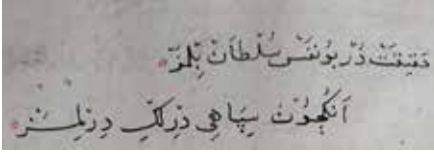 حقيقت در بو نفس سلطان بلمز
انكچون سپاهی درلك درلمز